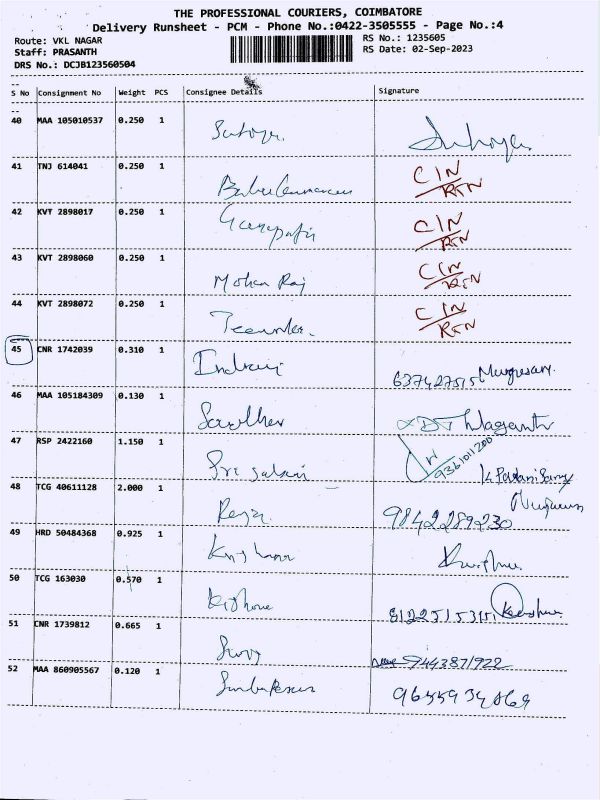 THE PROFESSIONAL COURIERS, COIMBATORE
Delivery Runsheet - PCM - Phone No.:0422-3505555 - Page No.:4
Route: VKL NAGAR
Staff: PRASANTH
DRS No.: DCJB123560504
RS No.: 1235605
RS Date: 02-Sep-2023
S No Consignment No Weight PCS Consignee Details Signature
40 MAA 105010537 0.250 1
41 TNJ 614041 0.250 1 CIN/RTN
42 KVT 2898017 0.250 1 Ganapathi CIN/RTN
43 KVT 2898060 0.250 1 Mohan Raj CIN/RTN
44 KVT 2898072 0.250 1 CIN/RTN
45 CNR 1742039 0.310 1 Indrani 637427515 Murugesan
46 MAA 105184309 0.130 1
47 RSP 2422160 1.150 1 9361011200
48 TCG 40611128 2.000 1 Raja 9842289230
49 HRD 50484368 0.925 1
50 TCG 163030 0.570 1 Kishore 8122515315
51 CNR 1739812 0.665 1 9443871922
52 MAA 860905567 0.120 1